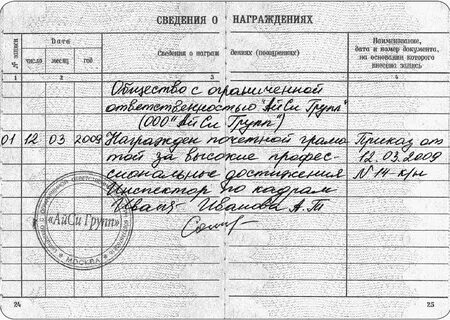 СВЕДЕНИЯ О НАГРАЖДЕНИЯХ
№ записи
Дата
число месяц год
Сведения о награждениях (поощрениях)
Наименование,
дата и номер документа,
на основании которого
внесена запись
1 2 3 4
Общество с ограниченной
ответственностью "АйСи Групп"
(ООО "АйСи Групп")
01 12 03 2009 Награжден почетной грамо- Приказ от
той за высокие профес- 12.03.2009
сиональные достижения N 14-к/н
Инспектор по кадрам
Иванова А.Т
«АйСи Групп»
МОСКВА
24 25